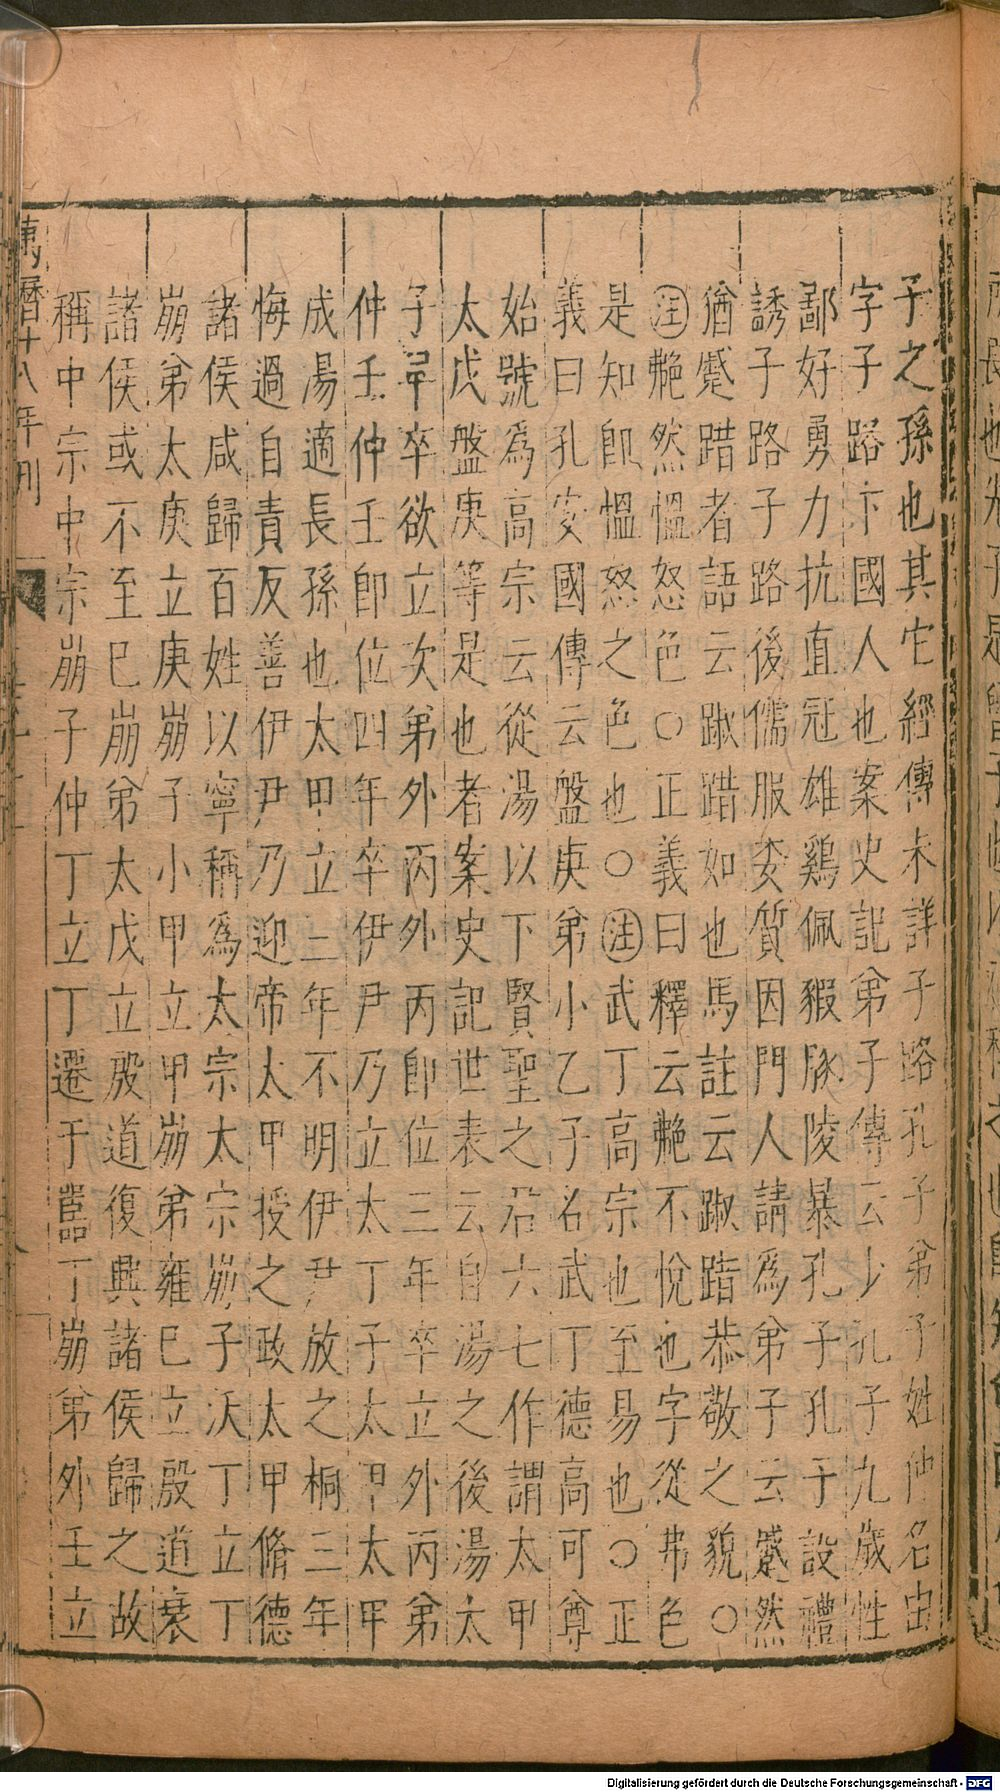 子之孫也其它經傳未詳子路孔子弟子姓仲名由
字子路卞國人也案史記弟子傳云少孔子九歲性
鄙好勇力抗直冠雄鷄佩豭豚陵暴孔子孔子設禮
誘子路子路後儒服委質因門人請爲弟子云蹵然
猶蹵踖者語云踧踖如也馬註云踧踖恭敬之貌○
注艴然慍怒色○正義曰釋云艴不悅也字從弗色
是知卽慍怒之色也○注武丁高宗也至易也○正
義曰孔安國傳云盤庚弟小乙子名武丁德高可尊
始號爲高宗云從湯以下賢聖之君六七作謂太甲
太戊盤庚等是也者案史記世表云自湯之後湯太
子早卒欲立次弟外丙外丙卽位三年卒立外丙弟
仲壬仲壬卽位四年卒伊尹乃立太丁子太甲太甲
成湯適長孫也太甲立三年不明伊尹放之桐三年
悔過自責反善伊尹乃迎帝太甲授之政太甲脩德
諸侯咸歸百姓以寧稱爲太宗太宗崩子沃丁立丁
崩弟太庚立庚崩子小甲立甲崩弟雍巳立殷道衰
諸侯或不至巳崩弟太戊立殷道復興諸侯歸之故
稱中宗中宗崩子仲丁立丁遷于嚚丁崩弟外壬立
萬曆十八年刊
Digitalisierung gefördert durch die Deutsche Forschungsgemeinschaft - DFG